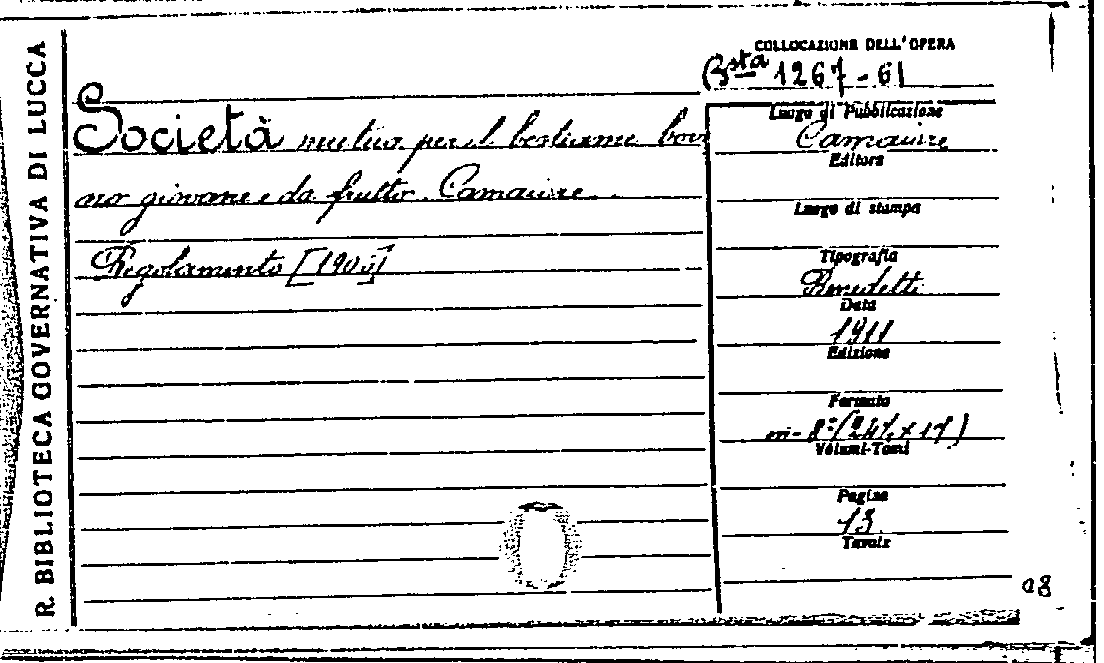 R. BIBLIOTECA GOVERNATIVA DI LUCCA
COLLOCAZIONE DELL'OPERA
Bsta 1267-61
Società mutua per il bestiame bovi
no giovane e da frutto. Camaiore.
Regolamento
Luogo di Pubblicazione
Camaiore
Editore
Luogo di stampa
Tipografia
Benedetti
Data
1911
Edizione
Formato
Volumi-Tomi
Pagine
13
Tavole
a8